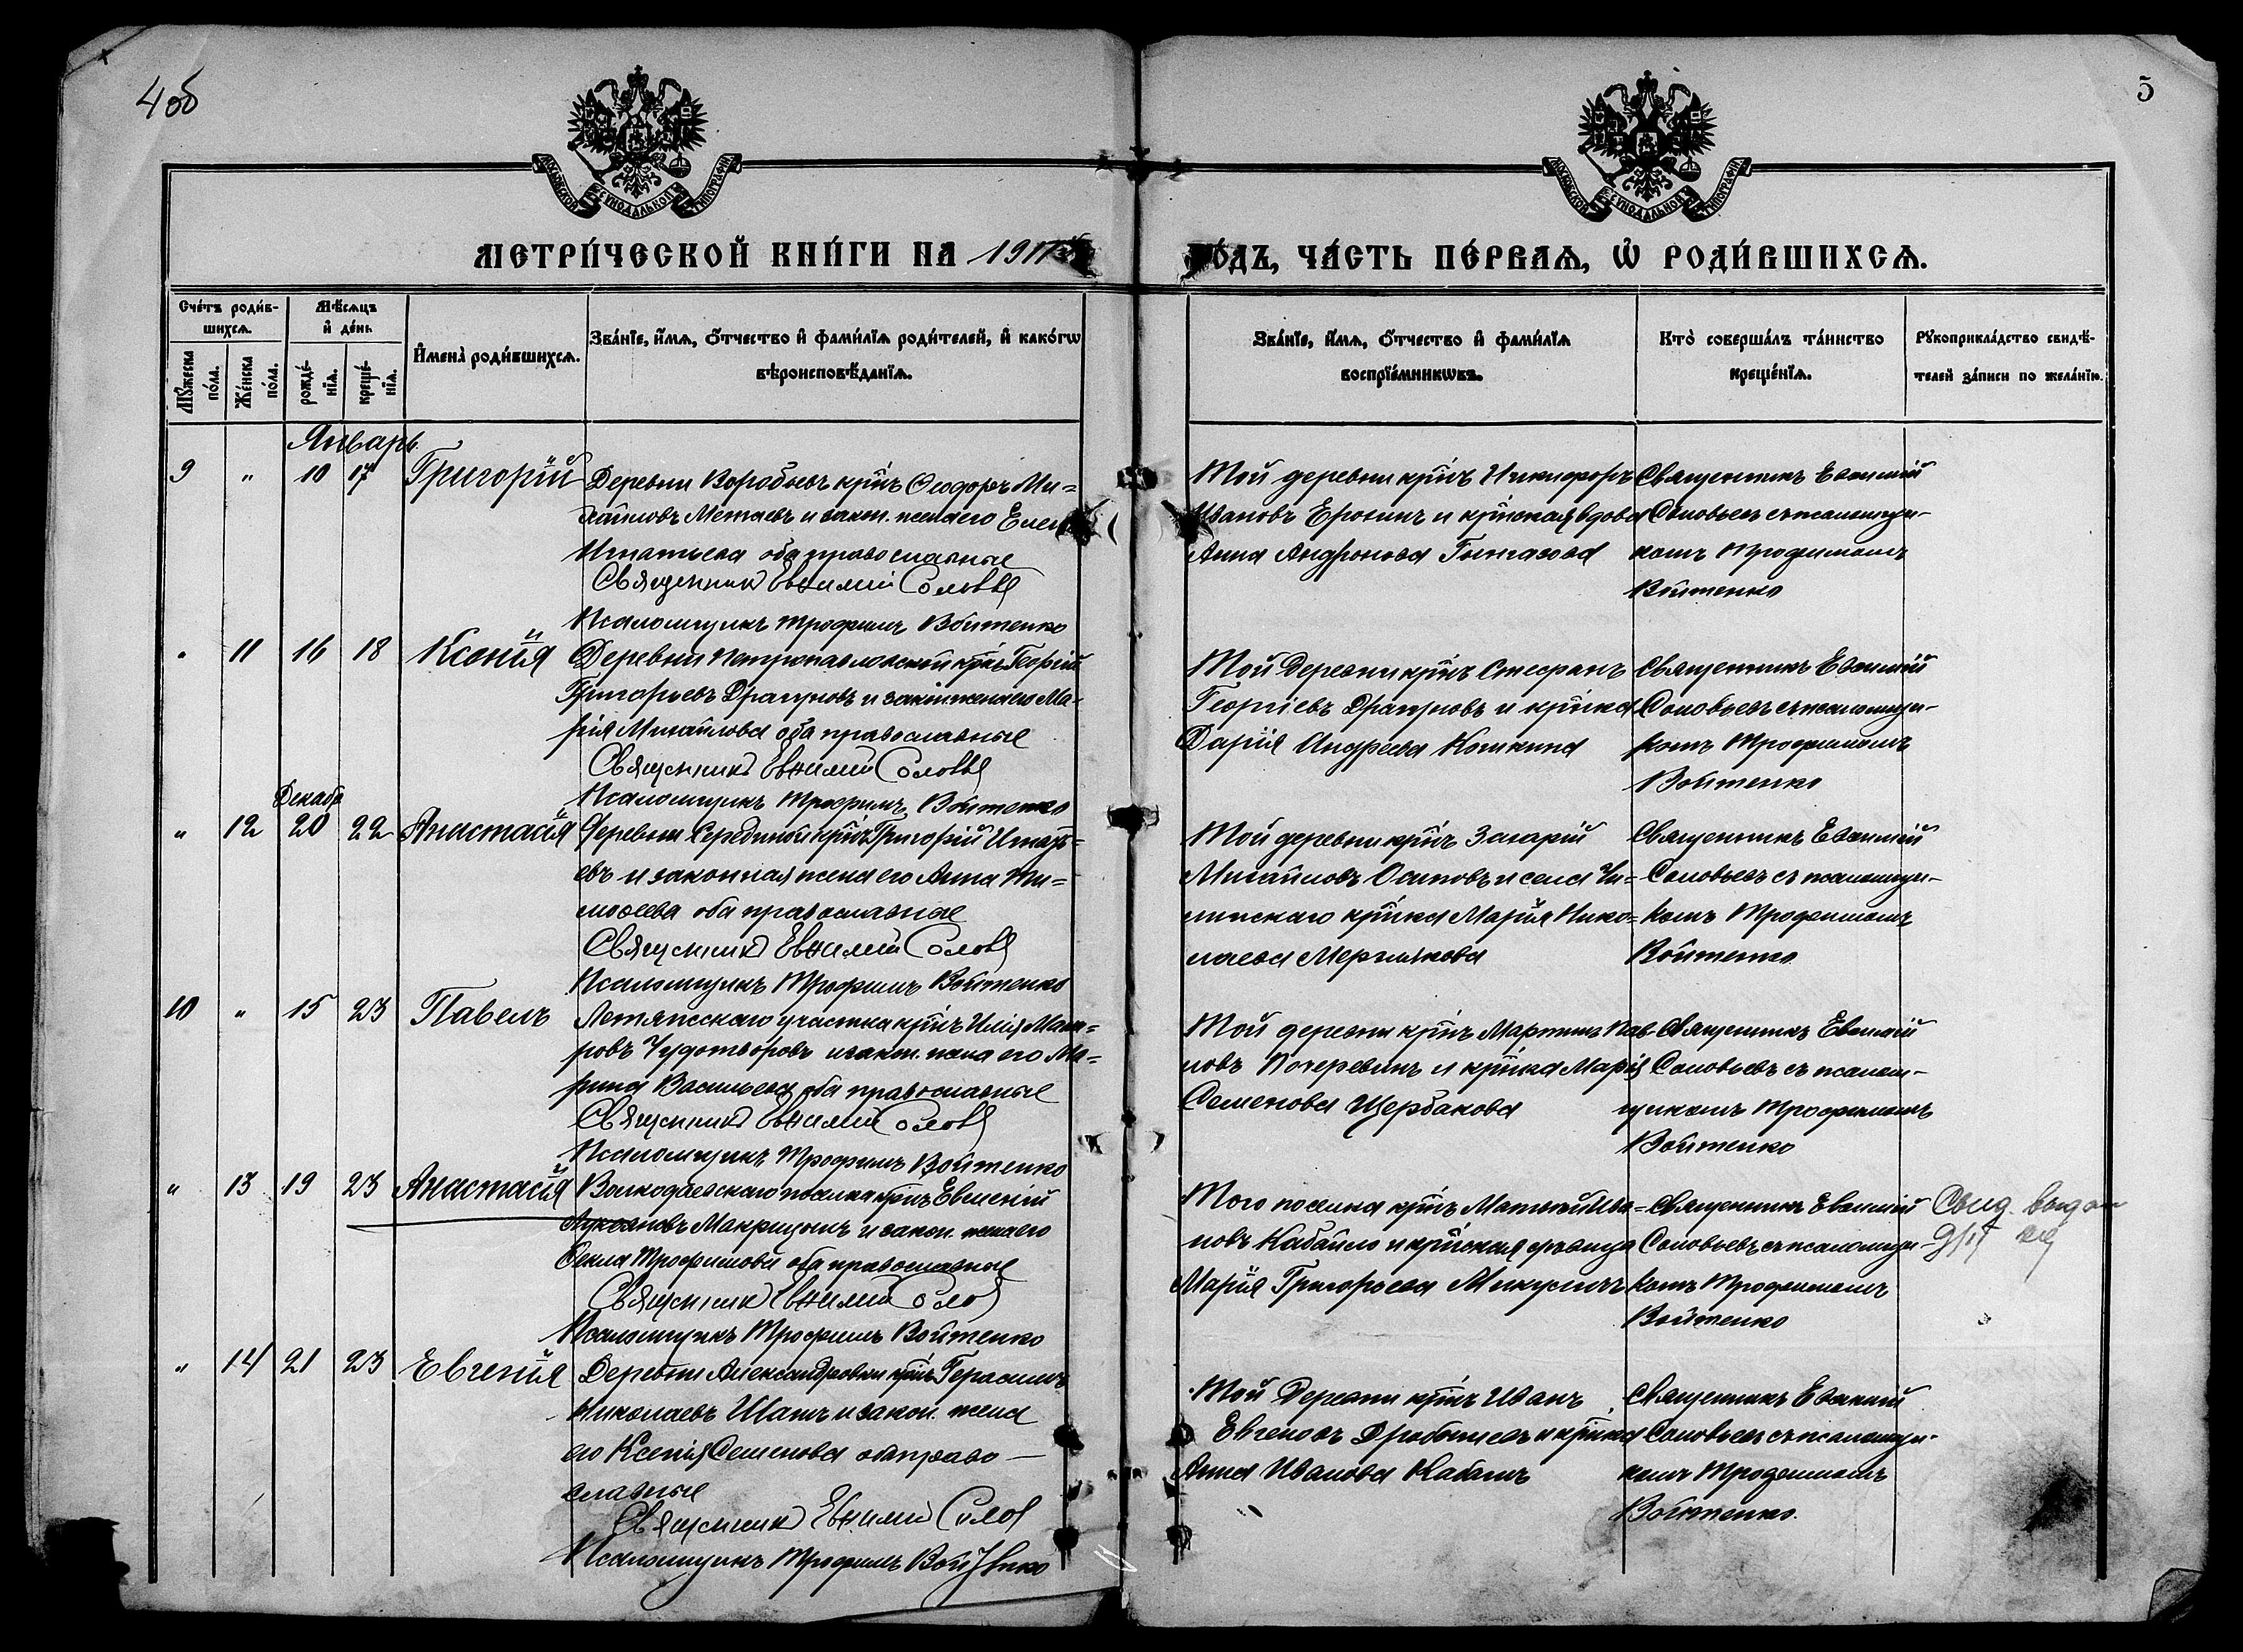 4 об
5
МОСКОВСКОЙ СѴНОДАЛЬНОЙ ТИПОГРАФІИ
МОСКОВСКОЙ СѴНОДАЛЬНОЙ ТИПОГРАФІИ
МЕТРИ́ЧЕСКОЙ КНИ́ГИ НА 1917
ГО́ДЪ, ЧА́СТЬ ПЕ́РВАѦ, Ѡ҆ РОДИ́ВШИХСѦ.
Сче́тъ роди́в-
шихсѧ.
Мѣ́сѧцъ
и҆ де́нь
Мꙋ́жеска
по́ла.
Же́нска
по́ла.
рожде́-
нїѧ.
креще́-
нїѧ.
И҆мена̀ роди́вшихсѧ.
Зва́нїе, и҆́мѧ, ѻ҆́тчество и҆ фами́лїѧ роди́телей, и҆ како́гѡ
вѣроисповѣ́данїѧ.
Зва́нїе, и҆́мѧ, ѻ҆́тчество и҆ фами́лїѧ
воспрїе́мникѡвъ.
Кто̀ соверша́лъ та́инство
креще́нїѧ.
Рꙋкоприкла́дство свидѣ́-
телей за́писи по жела́нїю.
Январь
9 " 10 17 Григорій
Деревни Воробьевъ кр-нъ Ѳеодоръ Ми=
хайловъ Метаевъ и закон. жена его Елена
Игнатьева оба православные
Священникъ Евѳимій Соловье
Псаломщикъ Трофимъ Войтенко
Той деревни кр-нъ Никифоръ
Ивановъ Ерохинъ и кр-нская вдова
Анна Андронова
Священникъ Евѳимій
Соловьевъ съ псаломщи-
комъ Трофимомъ
Войтенко
" 11 16 18 Ксенія
Деревни Петропавловской кр-нъ Георгій
Григорьевъ Драгуновъ и закон. жена его Ма-
рія Михайлова оба православные
Священникъ Евѳимій Соловье
Псаломщикъ Трофимъ Войтенко
Той деревни кр-нъ Стефанъ
Георгіевъ Драгуновъ и кр-нка
Дарія Андреева Кошкина
Священникъ Евѳимій
Соловьевъ съ псаломщи-
комъ Трофимомъ
Войтенко
Декабр
" 12 20 22 Анастасія
Деревни Серединой кр-нъ Григорій Игнать=
евъ и законная жена его Анна Ти=
моѳеева оба православные
Священникъ Евѳимій Соловь
Псаломщикъ Трофимъ Войтенко
Той деревни кр-нъ Захарій
Михайловъ Осиповъ и села Чи=
линскаго кр-нка Марія Нико=
лаева Мерзлякова
Священникъ Евѳимій
Соловьевъ съ псаломщи-
комъ Трофимомъ
Войтенко
10 " 15 23 Павелъ
участка кр-нъ Илія Мака=
ровъ Чудотворовъ и закон. жена его Ма=
рина Васильева оба православные
Священникъ Евѳимій Соловь
Псаломщикъ Трофимъ Войтенко
Той деревни кр-нъ Мартинъ Пав-
ловъ Почеревинъ и кр-нка Марія
Семенова Щербакова
Священникъ Евѳимій
Соловьевъ съ псалом-
щикомъ Трофимомъ
Войтенко
" 13 19 23 Анастасія
Волкодаевскаго поселка кр-нъ Евгеній
Лукояновъ Макрицынъ и закон. жена его
Ѳекла Трофимова оба православные
Священникъ Евѳимій Солов
Псаломщикъ Трофимъ Войтенко
Того поселка кр-нъ Матѳей Ива=
новъ Кабайло и кр-нская дѣвица
Марія Григорьева Микуличъ
Священникъ Евѳимій
Соловьевъ съ псаломщи-
комъ Трофимомъ
Войтенко
Свид. выдан
" 14 21 23 Евгенія
Деревни Александровки кр-нъ Герасимъ
Николаевъ Шашъ и закон. жена
его Ксенія Семенова оба право-
славные
Священникъ Евѳимій Солов
Псаломщикъ Трофимъ Войтенко
Той деревни кр-нъ Иванъ
Евгеновъ Дробышевъ и кр-нка
Анна Иванова Кабашъ
Священникъ Евѳимій
Соловьевъ съ псаломщи-
комъ Трофимомъ
Войтенко.